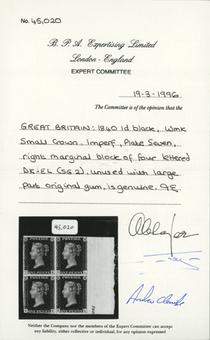 No. 45,020
B. P. A. Expertising Limited
London - England
EXPERT COMMITTEE
19-3-1996
The Committee is of the opinion that the
GREAT BRITAIN: 1840 1d black, Wmk
Small Crown. Imperf, Plate Seven,
right marginal block of four lettered
DK-EL (SG 2), unused with large
part original gum, is genuine.
45,020
POSTAGE POSTAGE
POSTAGE POSTAGE
Neither the Company nor the members of the Expert Committee can accept
any liability, either collective or individual, for any opinion expressed